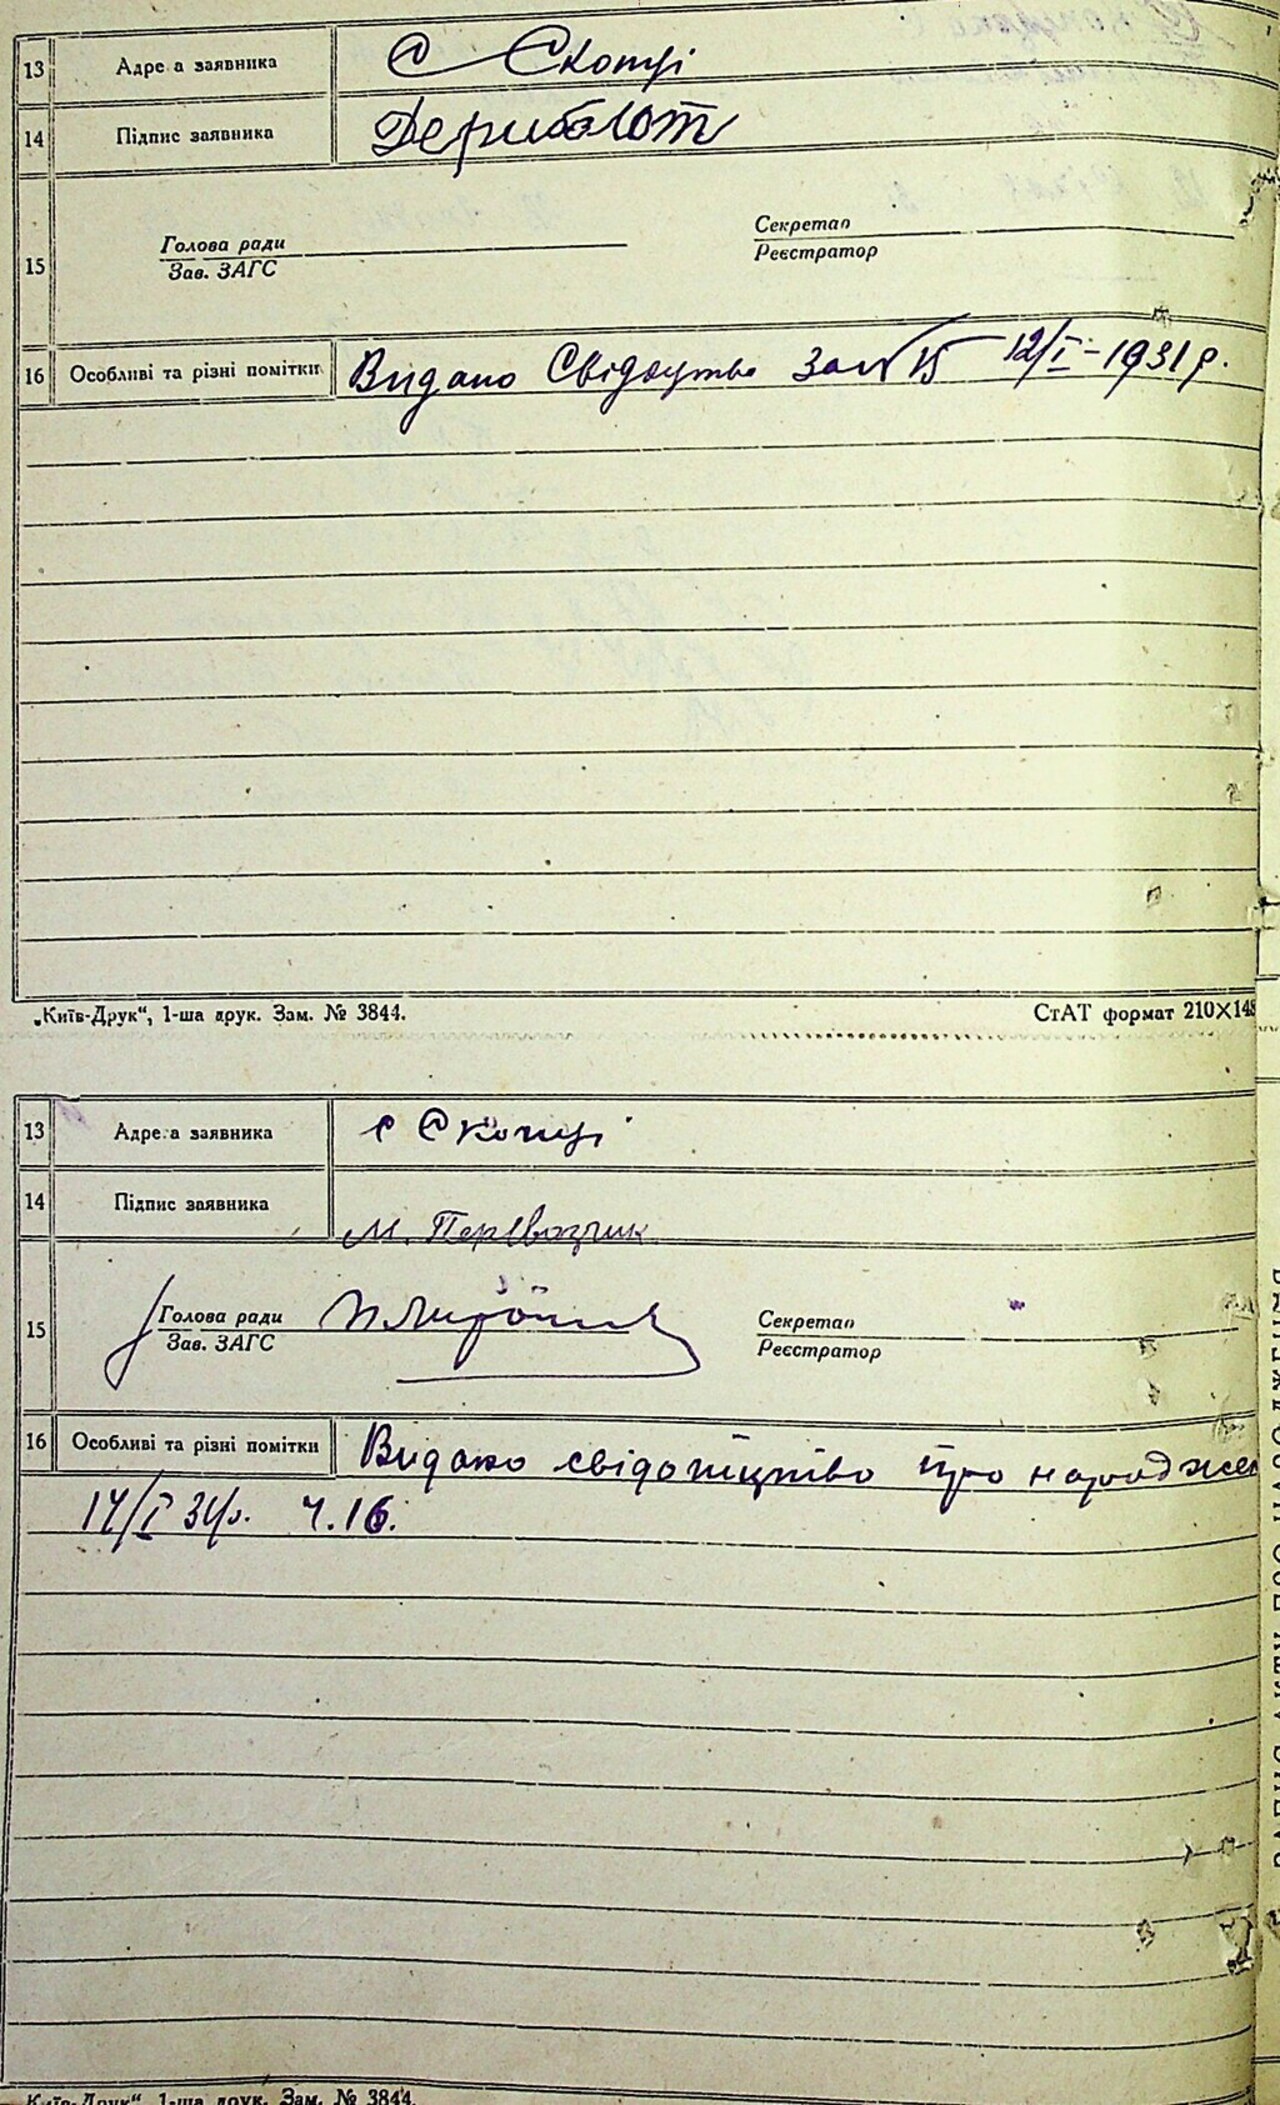 13 Адреса заявника с Скопці
14 Підпис заявника Дериболот
15 Голова ради Секретар
Зав. ЗАГС Реєстратор
16 Особливі та різні помітки Видано Свідоцтво за № 15 12/I-1931 р.
„Київ-Друк“, 1-ша друк. Зам. № 3844. СтАТ формат 210×148
13 Адреса заявника с Скопці
14 Підпис заявника М. Перевозчик
15 Голова ради Секретар
Зав. ЗАГС Реєстратор
16 Особливі та різні помітки Видано свідотцтво про народжен
14/I 31р. ч.16.
„Київ-Друк“, 1-ша друк. Зам. № 3844.